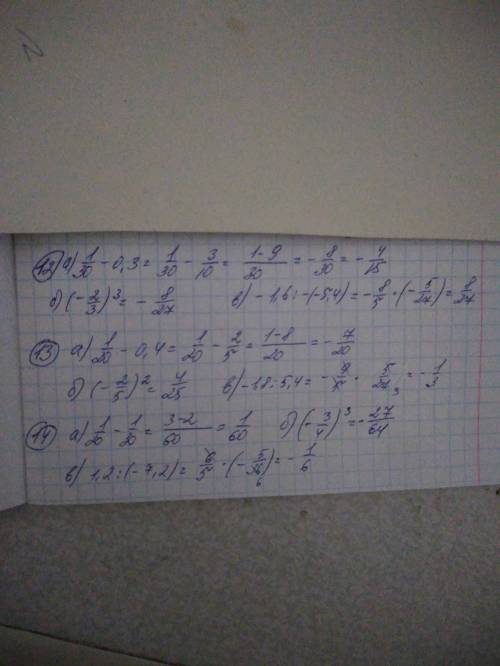 12) а) 1/30 - 0,3 = 1/30 - 3/10 = (1-9)/30 = -8/30 = -4/15
б) (-2/3)³ = -8/27 в) -1,6 : (-5,4) = -8/5 · (-5/27) = 8/27
13) а) 1/20 - 0,4 = 1/20 - 2/5 = (1-8)/20 = -7/20
б) (-2/5)² = 4/25 в) -1,8 : 5,4 = · = -1/3
14) а) 1/20 - = (3-2)/60 = 1/60 б) (-3/4)³ = -27/64
в) 1,2 : (-7,2) = 6/5 · (-5/36 6) = -1/6